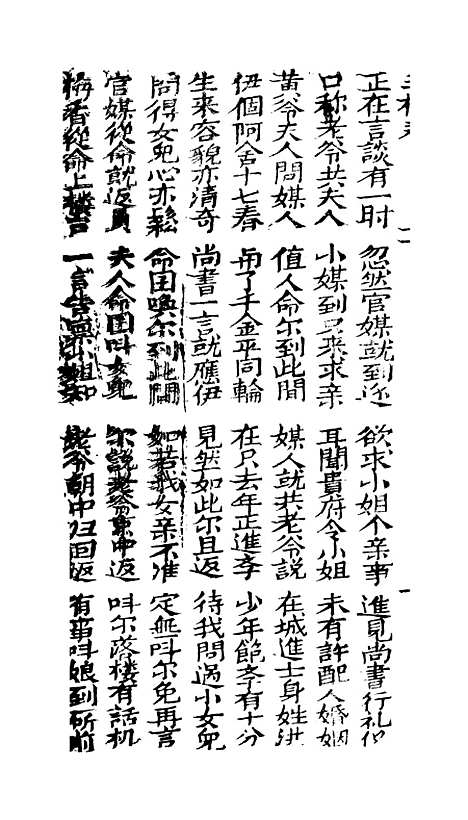 正在言談有一时 忽然官媒就到迩 欲求小姐个亲事 進見尚書行礼仪
口称老爷共夫人 小媒到只来求亲 耳聞貴府令小姐 未有許配人婚姻
黄爷夫人問媒人 值人命尔到此間 媒人就共老爷說 在城進士身姓洪
伊個阿舍十七春 甫了千金平同輪 在只去年正進斈 少年飽斈有十分
生來容貌亦清奇 尚書一言就應伊 見然如此尔且返 待我問過小女兒
問得女兒心亦鬆 命囝喚尔到此間 如若我女亲不准 定無呌尔免再言
官媒從命就返員 夫人命囝呌女兒 尔說老爷東中返 呌尔落楼有話机
梅香從命上楼去 一言告禀小姐知 老爷朝中归回返 有事呌娘到所前